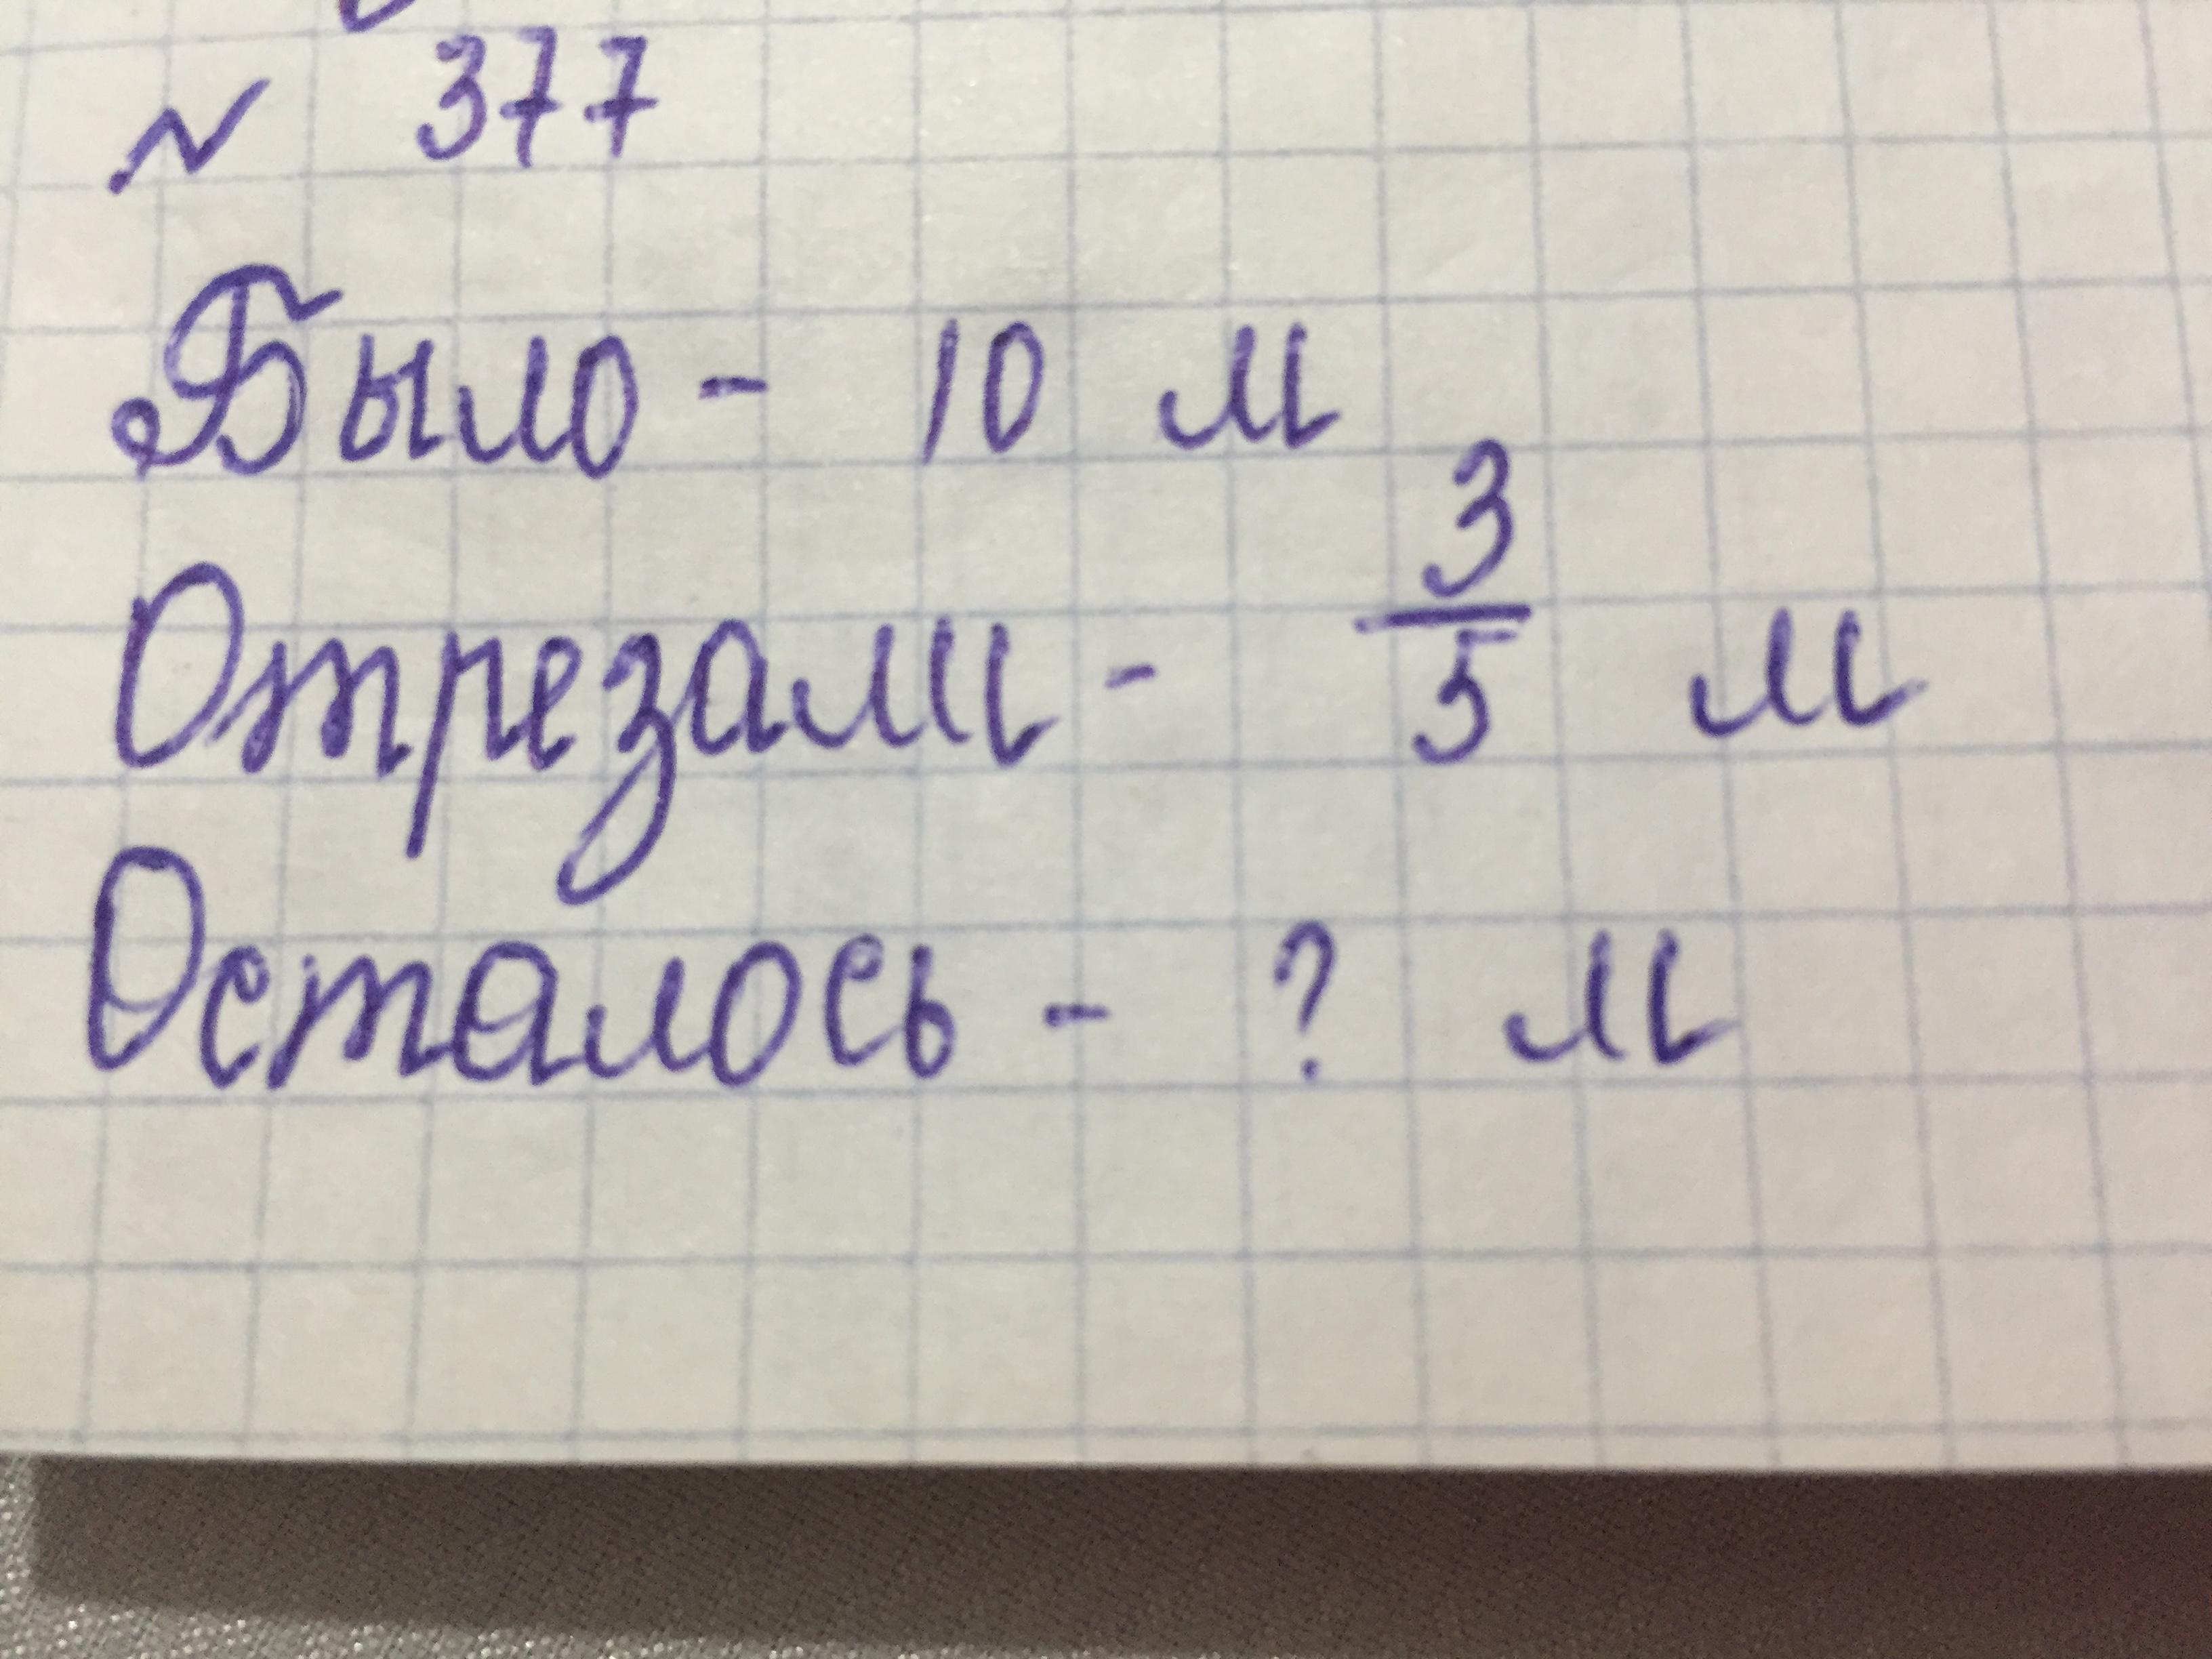 № 377
Было - 10 м
Отрезали - 3/5 м
Осталось - ? м